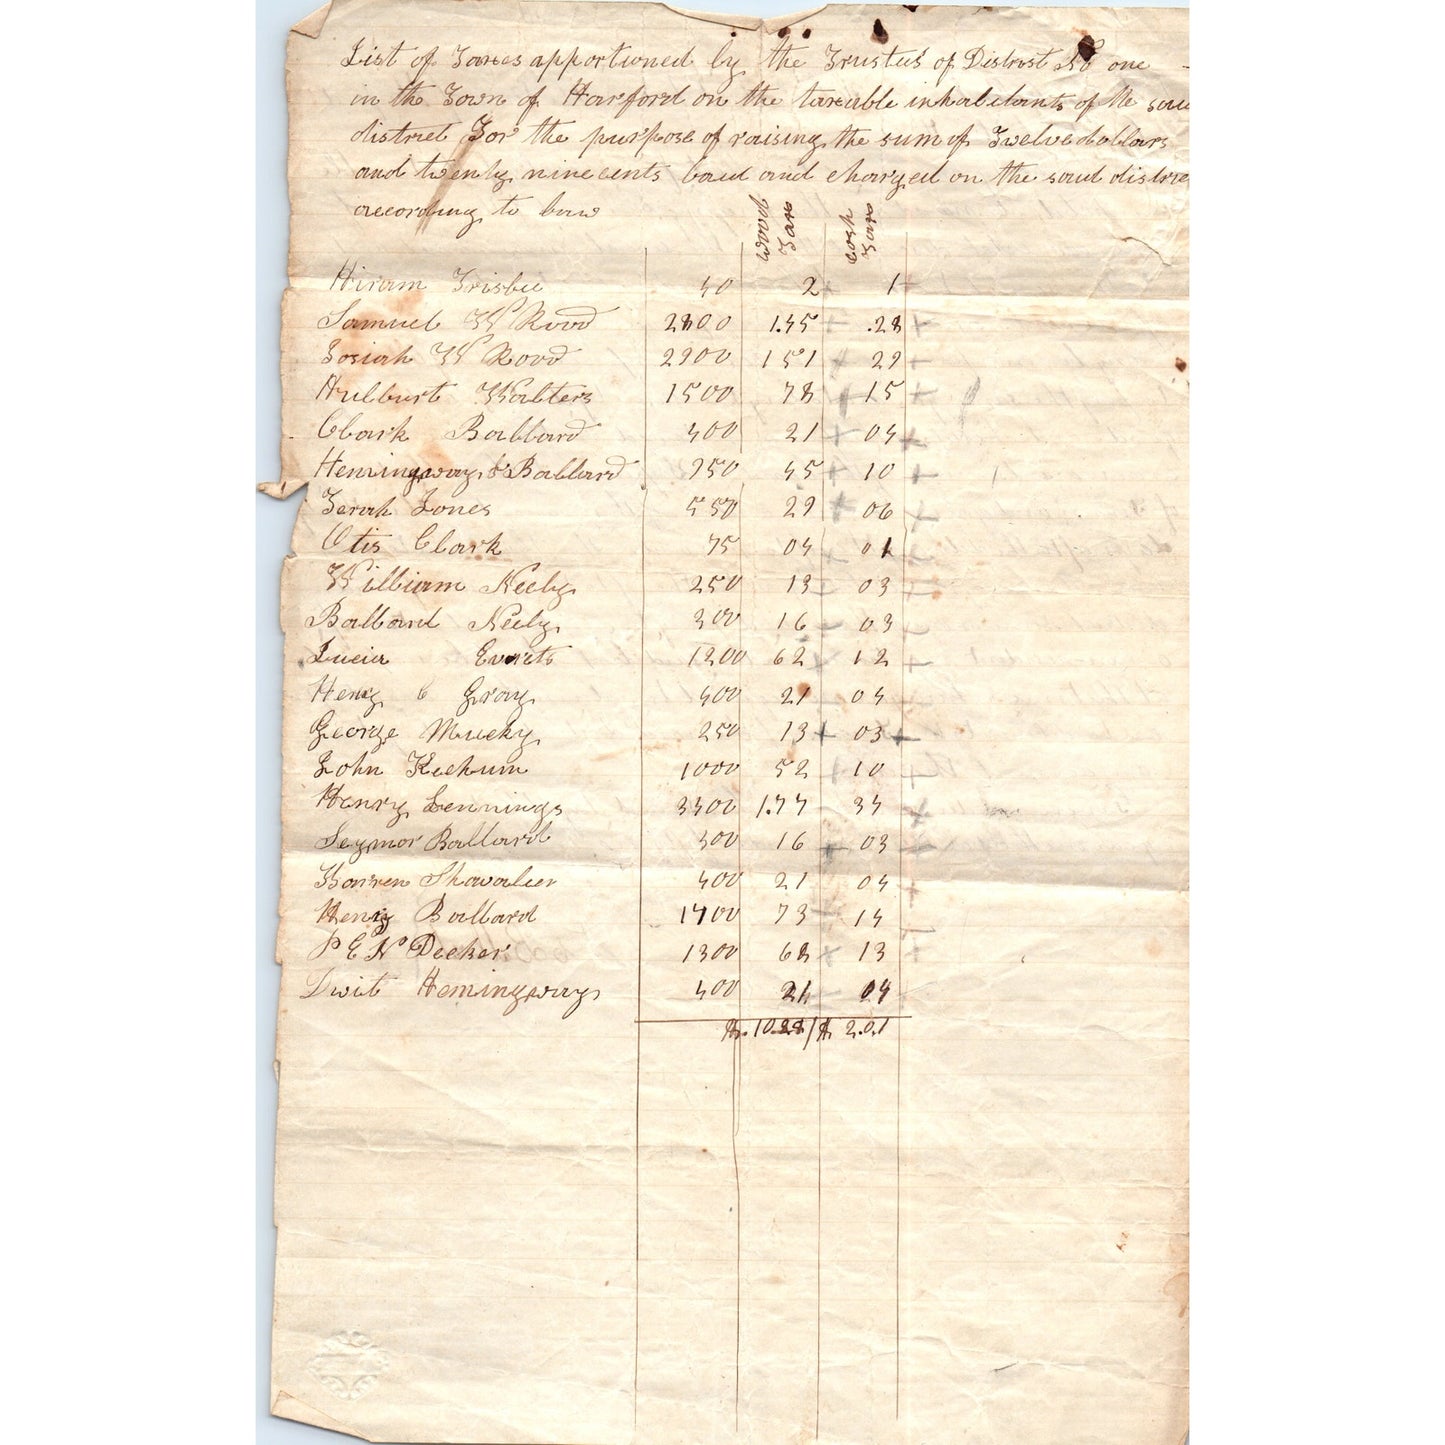 List of Taxes apportioned by the Trustees of District No one
in the Town of Harford on the taxable inhabitants of the said
district For the purpose of raising the sum of Twelve dollars
and twenty nine cents laid and charged on the said district
according to law
Wood Tax Cash Tax
Hiram Frisbee 40 2 1
Samuel W Rood 2800 1.45 .28
Josiah W Rood 2900 151 29
Hulburt Walters 1500 78 15
Clark Ballard 400 21 04
Hemingway & Ballard 950 45 10
Zerah Jones 550 29 06
Otis Clark 75 04 01
William Neely 250 13 03
Ballard Neely 300 16 03
Lucia Evarts 1200 62 12
Heny C Gray 400 21 04
George Mucky 250 13 03
John Keehum 1000 52 10
Henry Jennings 3400 1.77 34
Seymor Ballard 300 16 03
Warren Shavalier 400 21 04
Heny Ballard 1400 73 14
P E H Decker 1300 68 13
Dwit Hemingway 400 21 04
$. 10.28 / $ 2.01